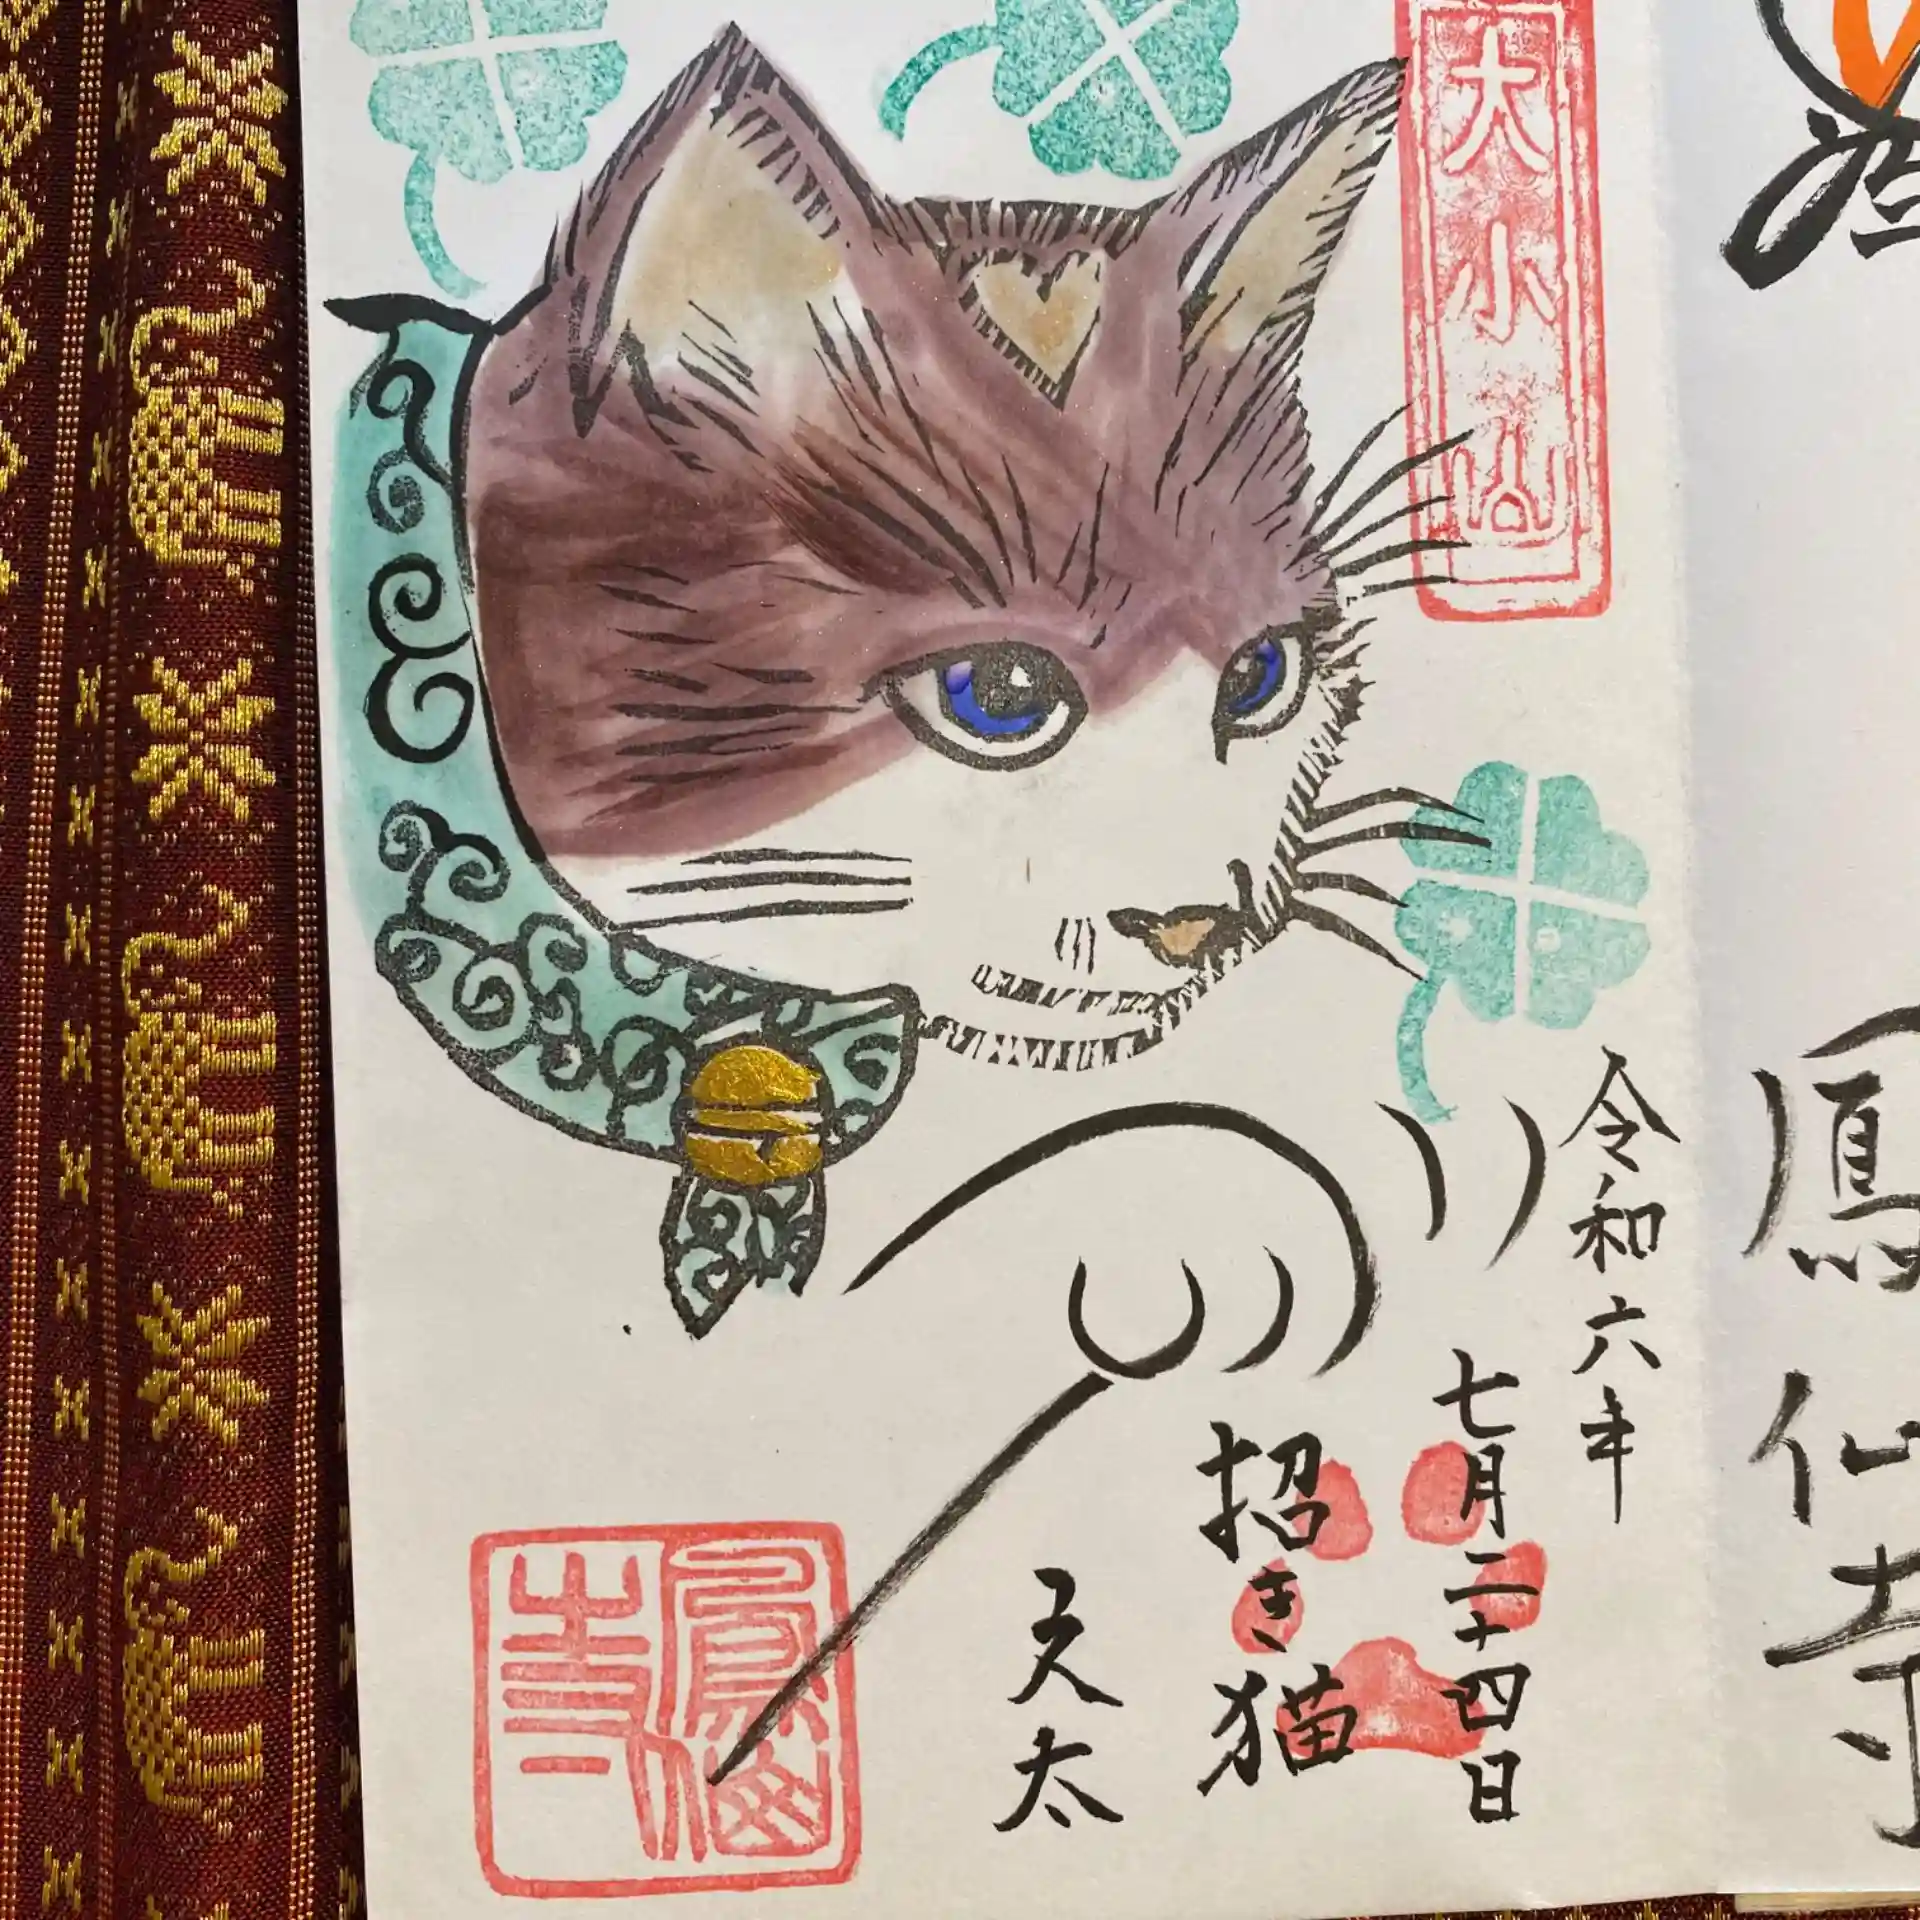 鳳仙寺
大小山
令和六年
七月二十四日
招き猫
天太
鳳仙寺